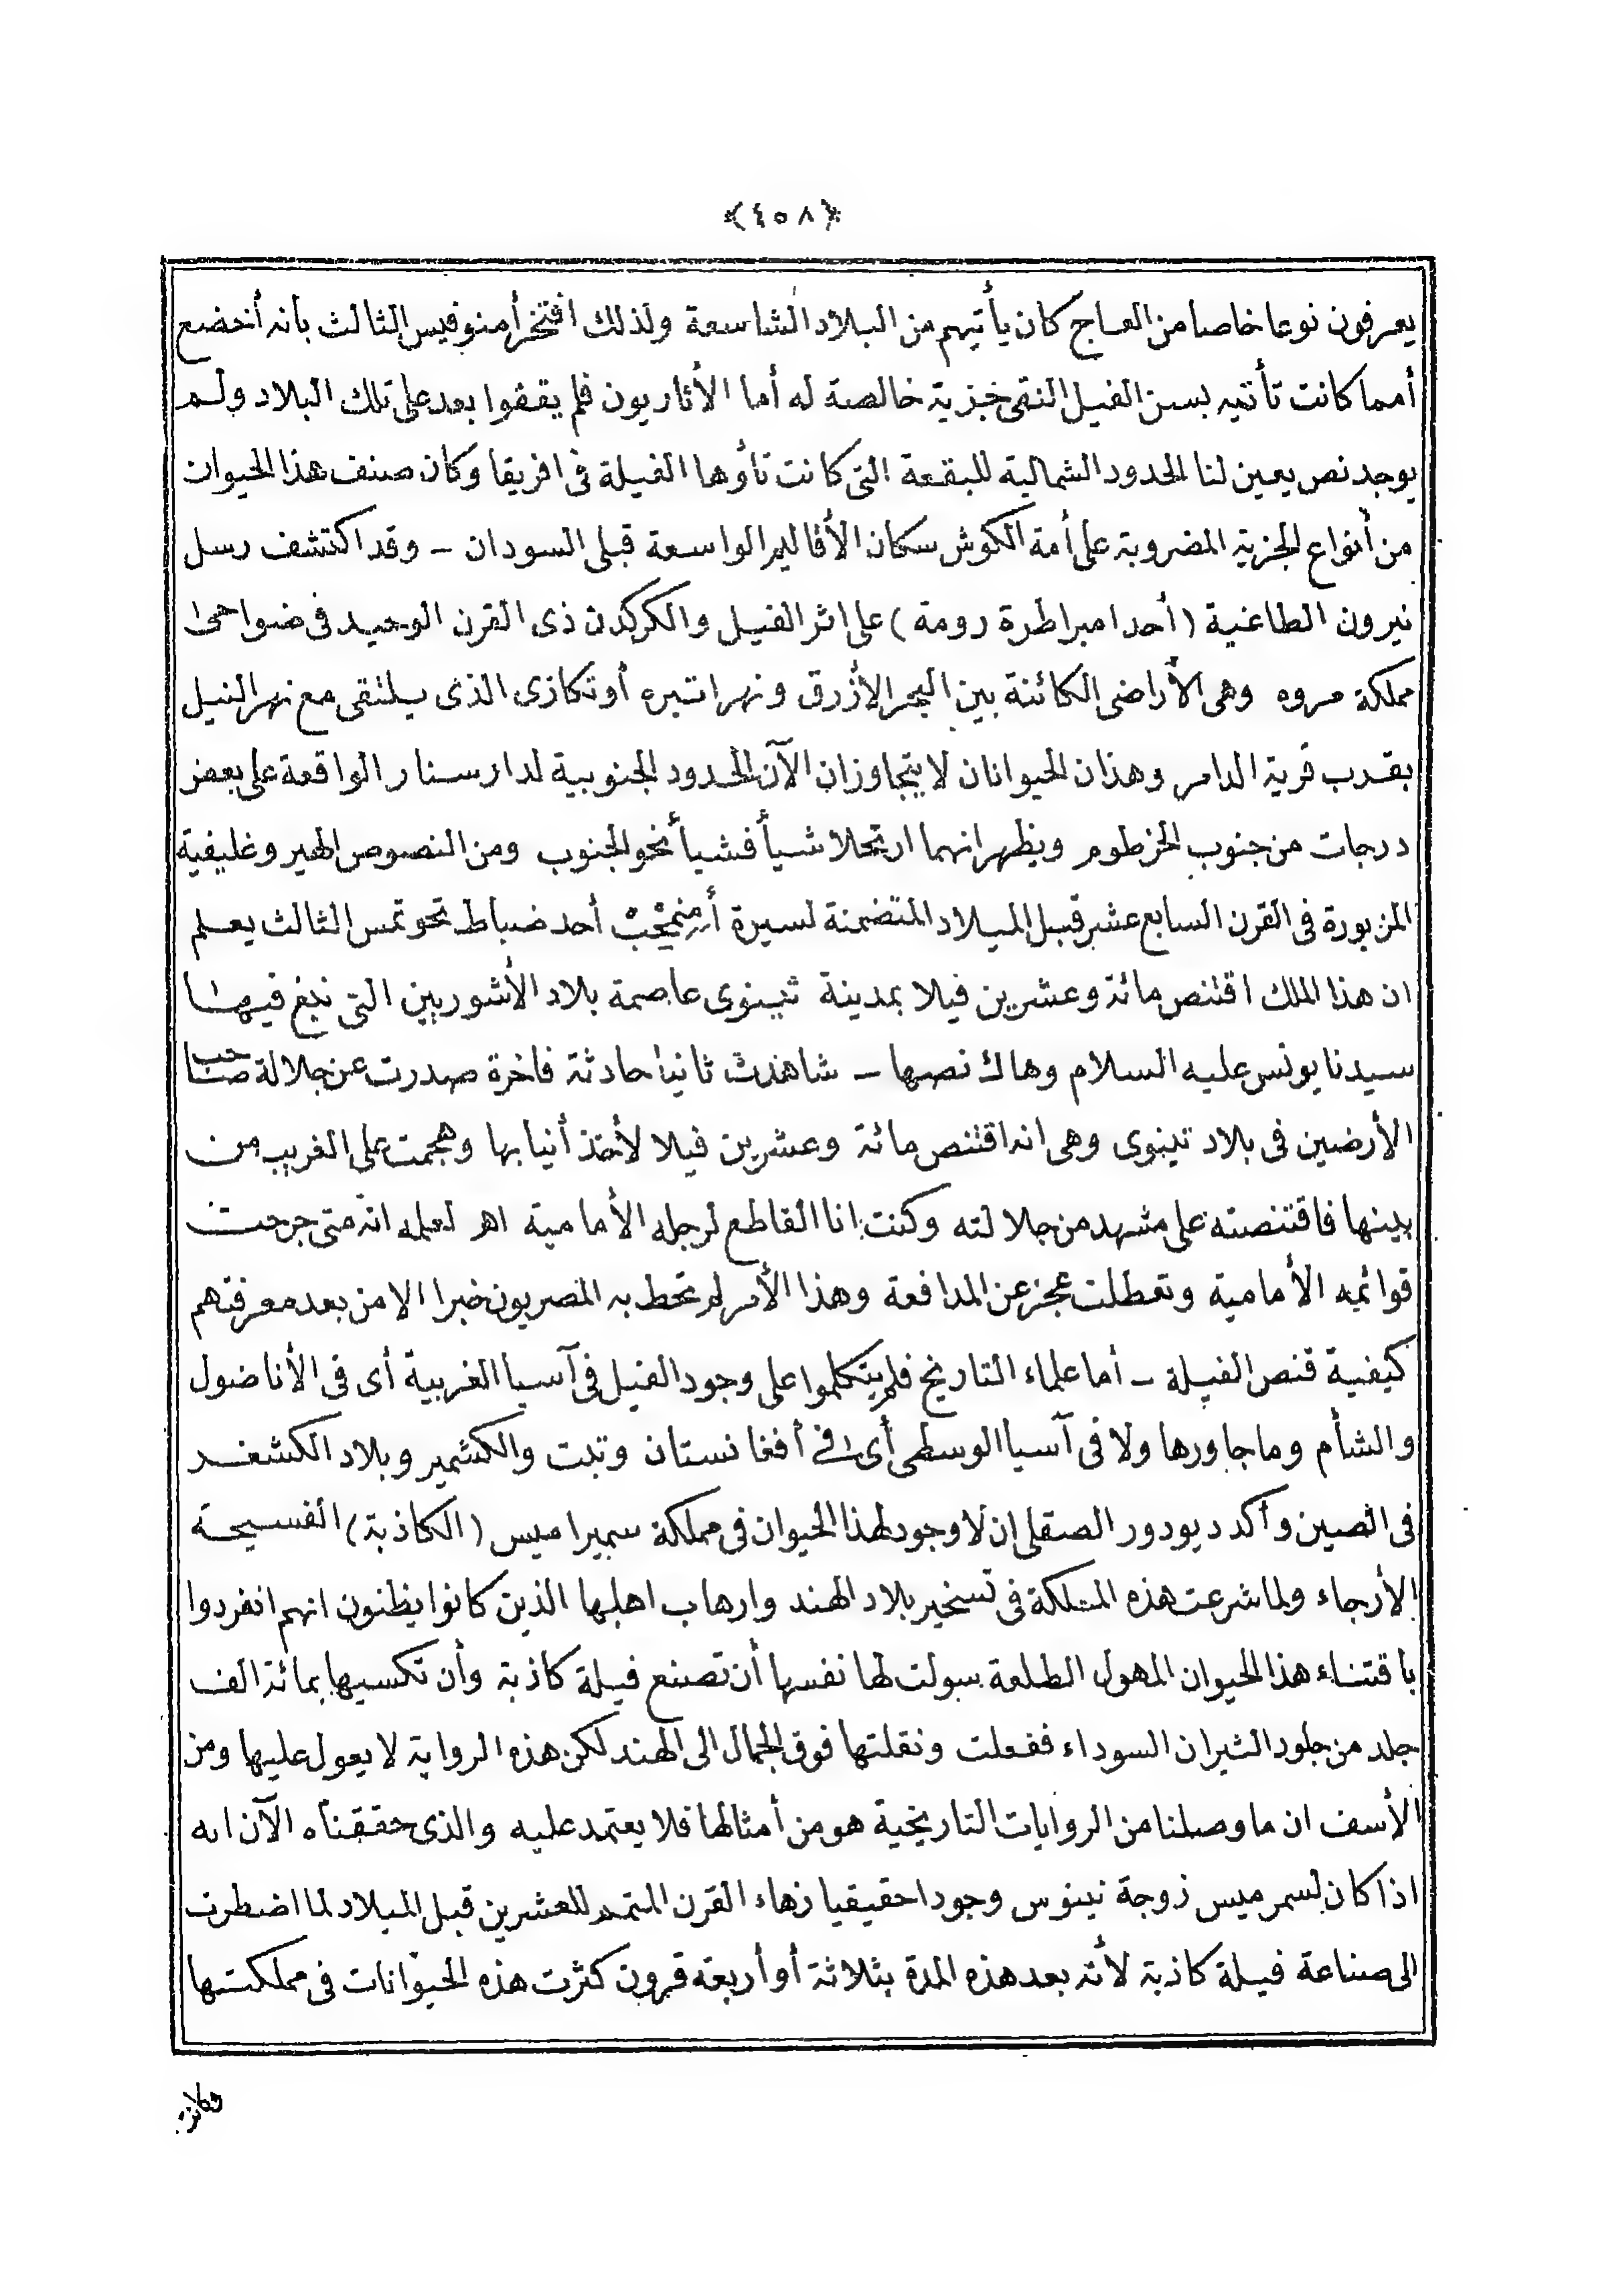 ﴿٤٠٨﴾
يعرفون نوعا خاصا من العاج كان يأتيهم من البلاد الشاسعة ولذلك افتخر أمنوفيس الثالث بانه أخضع
أمما كانت تأتيه بسن الفيل النقى جزية خالصة له أما الأثاريون فلم يقفوا بعد على تلك البلاد ولم
يوجد نص يعين لنا الحدود الشمالية للبقعة التى كانت تأوها الفيلة فى افريقا وكان صنف هذا الحيوان
من أنواع الجزية المضروبة على أمة الكوش سكان الأقاليم الواسعة قبلى السودان – وقد اكتشف رسل
نيرون الطاغية (أحد امبراطرة رومة) على اثر الفيل والكركدن ذى القرن الوحيد فى ضواحى
مملكة مروه وهى الأراضى الكائنة بين البحر الأزرق ونهر اتبره أو تكازى الذى يلتقى مع نهر النيل
بقرب قرية الدامر وهذان الحيوانان لا يتجاوزان الآن الحدود الجنوبية لدار سنار الواقعة على بعض
درجات من جنوب الخرطوم ويظهر انهما ارتحلا شيأ فشيأ نحو الجنوب ومن النصوص الهيروغليفية
المزبورة فى القرن السابع عشر قبل الميلاد المتضمنة لسيرة أمنمحب أحد ضباط تحوتمس الثالث يعلم
ان هذا الملك اقتنص مائة وعشرين فيلا بمدينة نينوى عاصمة بلاد الأشوريين التى نبغ فيها
سيدنا يونس عليه السلام وهاك نصها – شاهدت ثانيا حادثة فاخرة صدرت عن جلالة صاحب
الأرضين فى بلاد نينوى وهى انه اقتنص مائة وعشرين فيلا لأخذ أنيابها وهجمت على الغريب من
بينها فاقتنصته على مشهد من جلالته وكنت انا القاطع لرجله الأمامية اهـ لعلمه انه متى جرحت
قوائمه الأمامية وتعطلت عجز عن المدافعة وهذا الأمر لم تحط به المصريون خبرا الا من بعد معرفتهم
كيفية قنص الفيلة – أما علماء التاريخ فلم يتكلموا على وجود الفيل فى آسيا الغربية أى فى الأناضول
والشأم وما جاورها ولا فى آسيا الوسطى أى فى أفغانستان وتبت والكشمير وبلاد الكشغر
فى الصين وأكد ديودور الصقلى ان لا وجود لهذا الحيوان فى مملكة سميراميس (الكاذبة) الفسيحة
الأرجاء ولما شرعت هذه الملكة فى تسخير بلاد الهند وارهاب اهلها الذين كانوا يظنون انهم انفردوا
باقتناء هذا الحيوان المهول الطلعة سولت لها نفسها أن تصنع فيلة كاذبة وأن تكسيها بمائة الف
جلد من جلود الثيران السوداء ففعلت ونقلتها فوق الجمال الى الهند لكن هذه الرواية لا يعول عليها ومن
الأسف ان ما وصلنا من الروايات التاريخية هو من أمثالها فلا يعتمد عليه والذى حققناه الآن انه
اذا كان لسمرميس زوجة نينوس وجودا حقيقيا زهاء القرن المتمم للعشرين قبل الميلاد لما اضطرت
الى صناعة فيلة كاذبة لأنه بعد هذه المدة بثلاثة أو أربعة قرون كثرت هذه الحيوانات فى مملكتها
وكانت